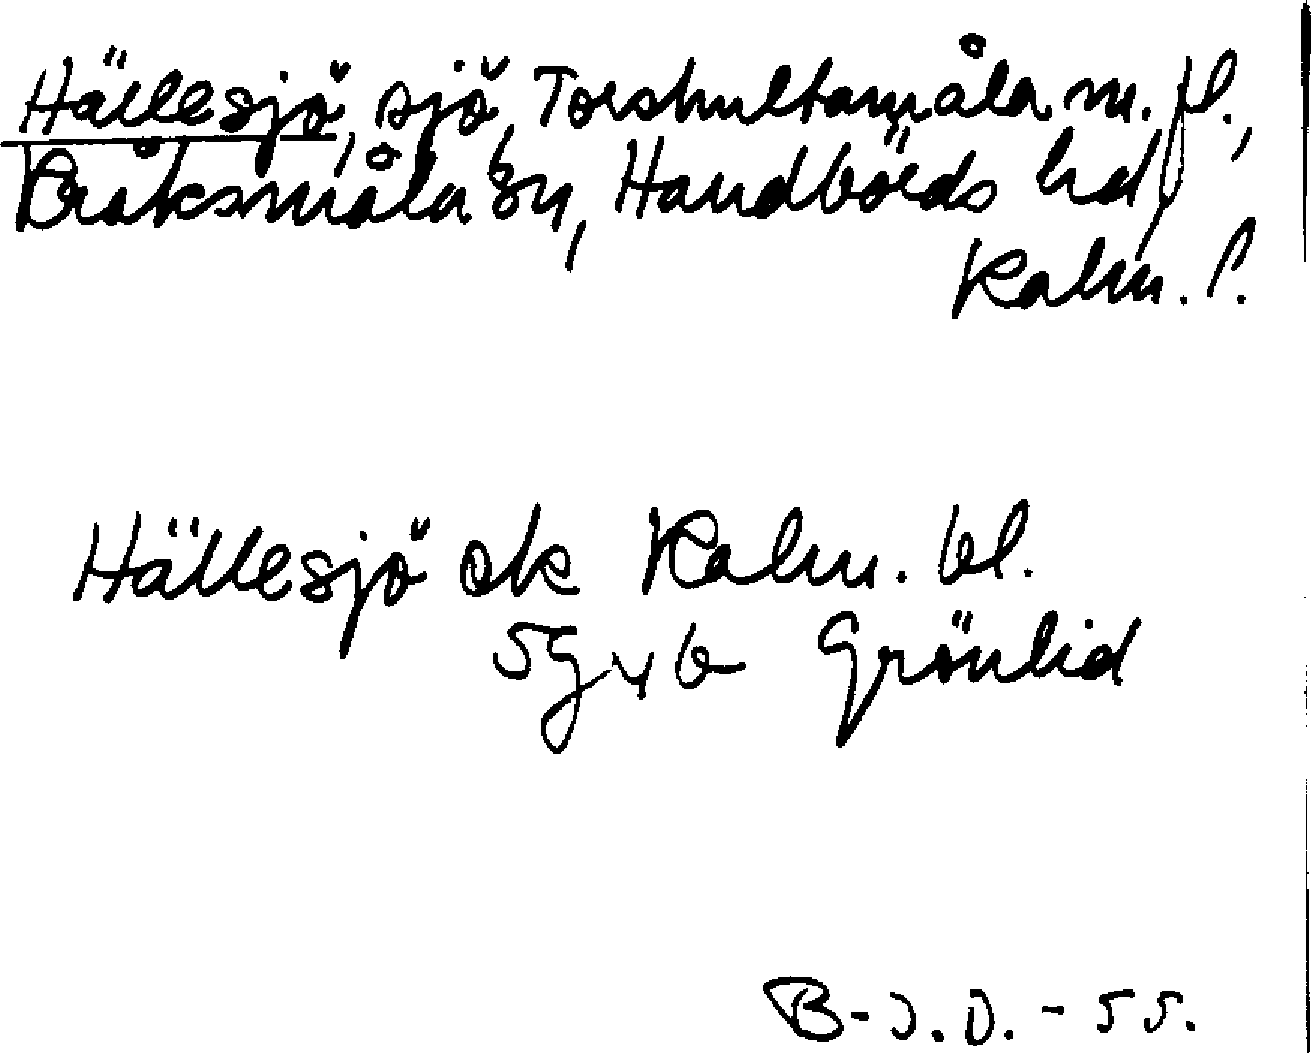 Hällesjö, sjö, Torshultamåla m. fl.,
Bråksmåla by, Handbörds hd,
Kalm. l.
Hällesjö ek Kalm. bl.
5g vb Grönlid
B-J.D. - 55.